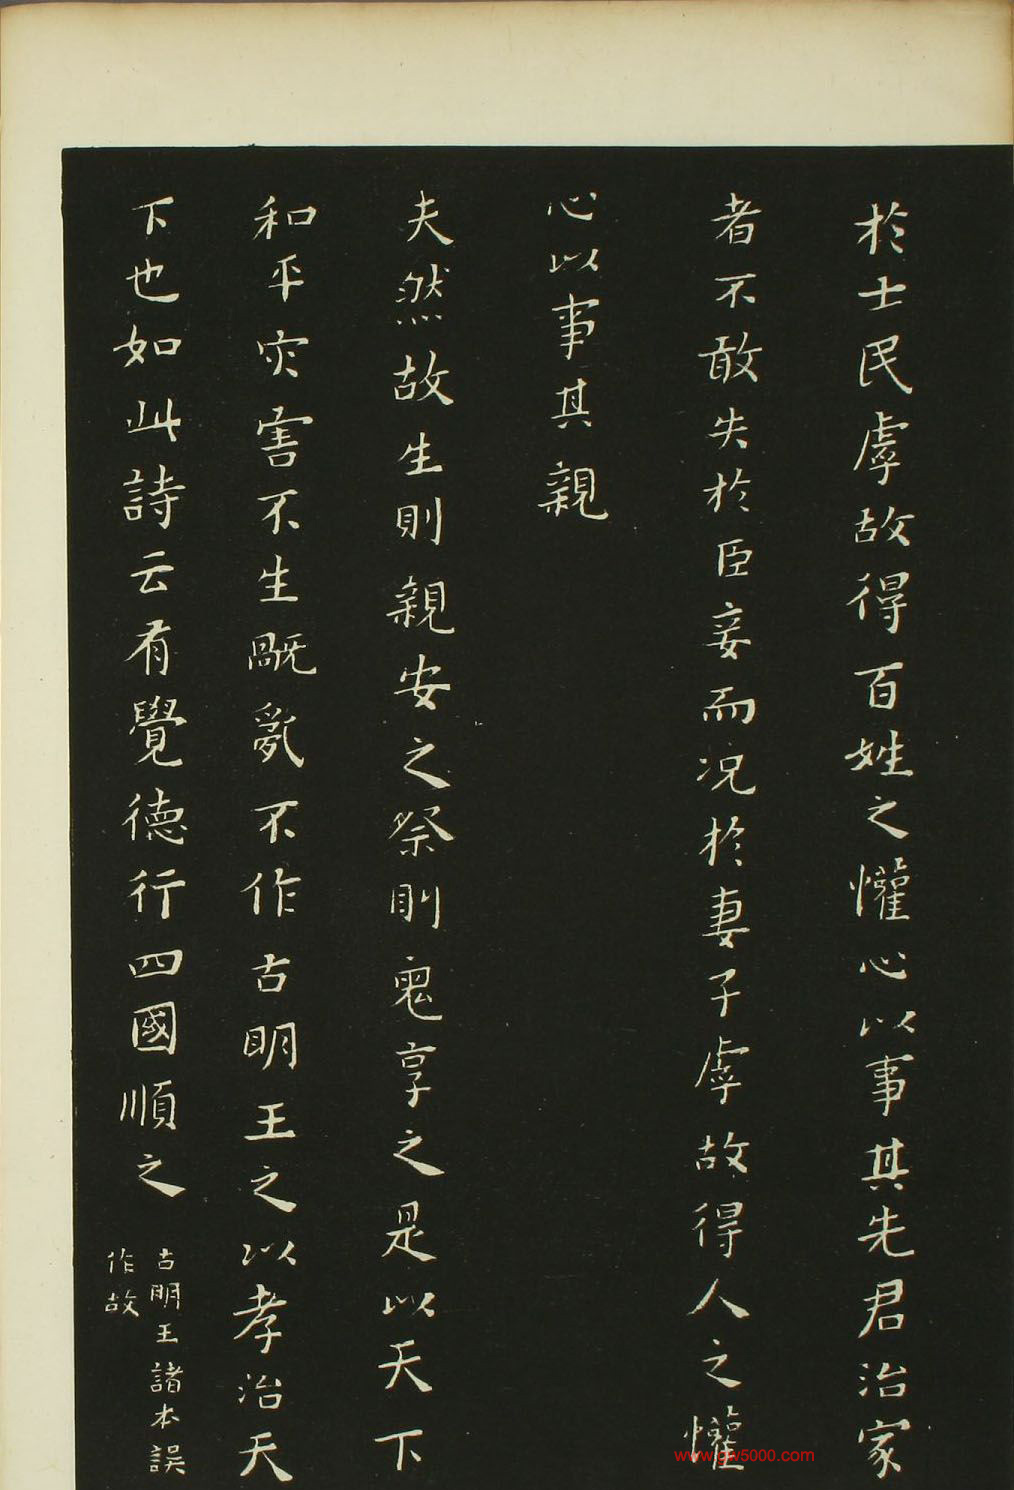 於士民虖故得百姓之懽心以事其先君治家
者不敢失於臣妾而况於妻子虖故得人之懽
心以事其親
夫然故生則親安之祭則鬼享之是以天下
和平灾害不生𥛔亂不作古明王之以孝治天
下也如此詩云有覺德行四國順之
古明王諸本誤
作故
www.gw5000.com